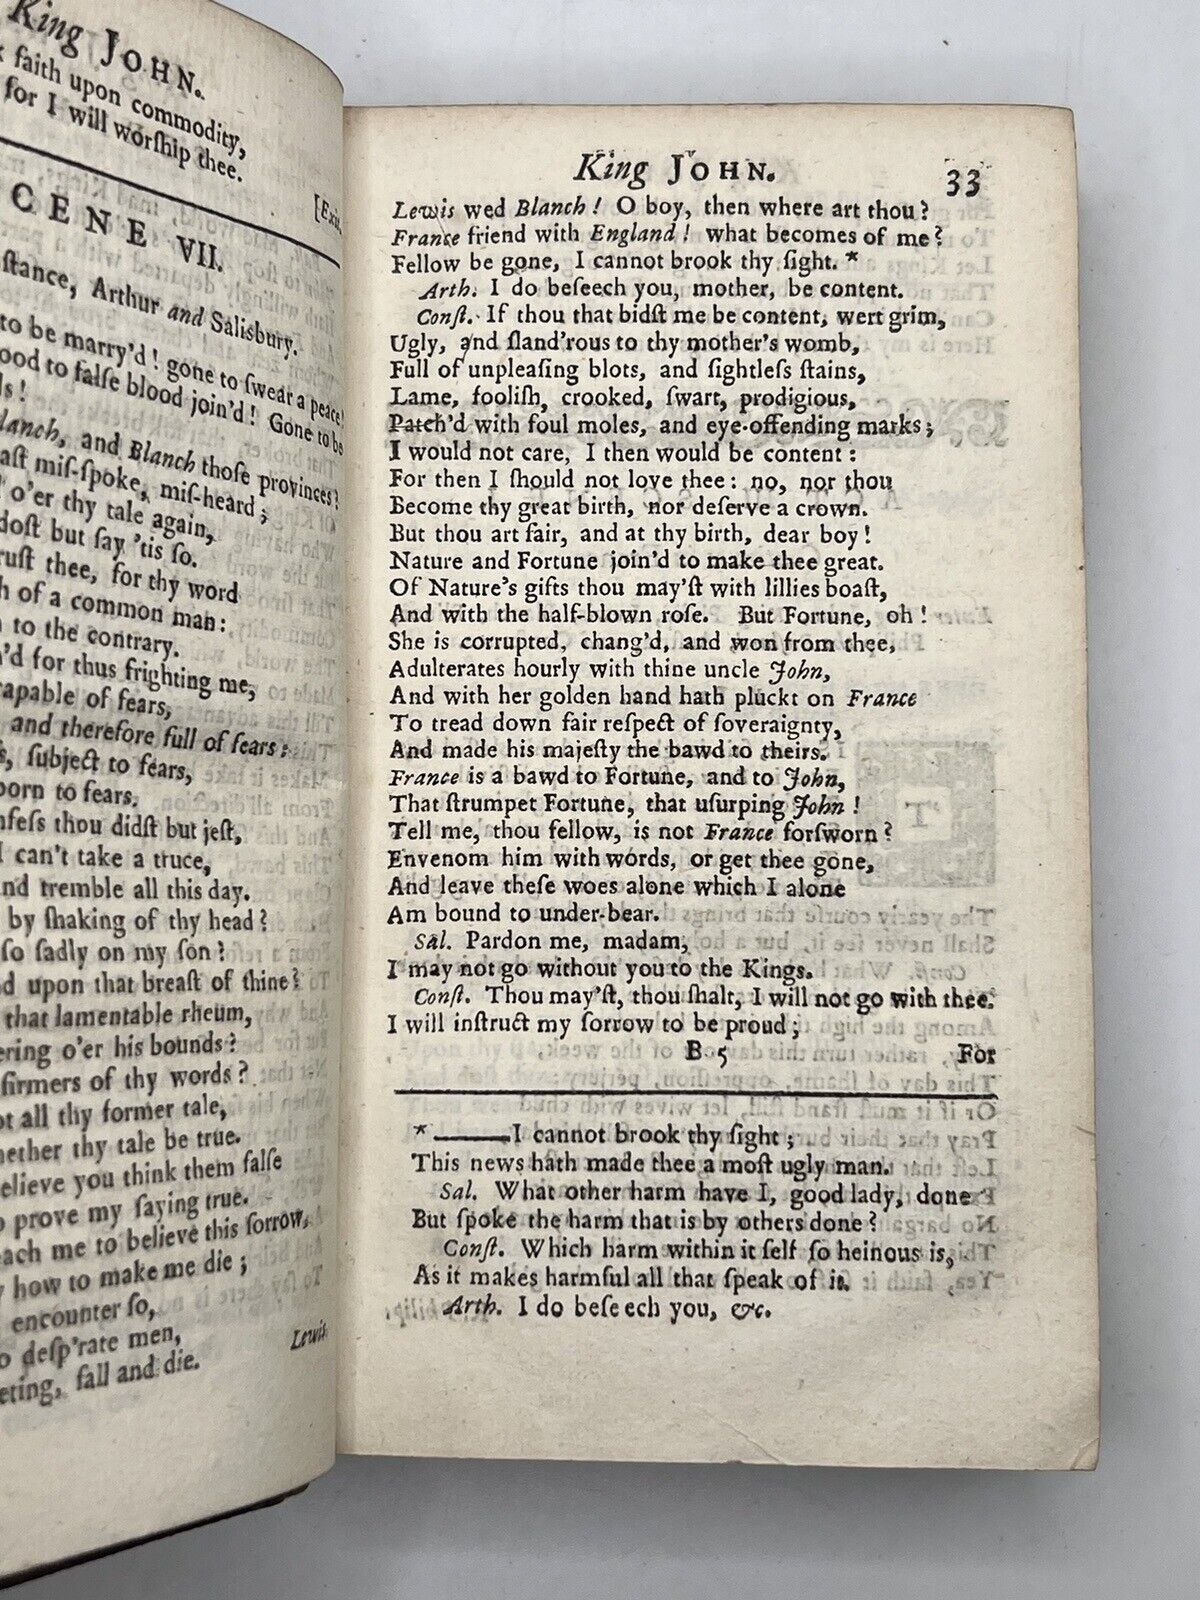 King JOHN.
faith upon commodity,
for I will worſhip thee.
[Exit.
SCENE VII.
ſtance, Arthur and Salisbury.
to be marry'd! gone to ſwear a peace!
ood to falſe blood join'd! Gone to be
ds!
Blanch, and Blanch thoſe provinces?
aſt miſ-ſpoke, miſ-heard;
o'er thy tale again,
doſt but ſay 'tis ſo.
ruſt thee, for thy word
of a common man:
to the contrary.
'd for thus frighting me,
capable of fears,
and therefore full of fears:
ſubject to fears,
born to fears.
nfeſs thou didſt but jeſt,
I can't take a truce,
and tremble all this day.
by ſhaking of thy head?
ſo ſadly on my ſon?
upon that breaſt of thine?
that lamentable rheum,
ering o'er his bounds?
firmers of thy words?
ot all thy former tale,
hether thy tale be true.
elieve you think them falſe
o prove my ſaying true.
each me to believe this ſorrow,
how to make me die;
encounter ſo,
o deſp'rate men,
eting, fall and die.
Lewis
King JOHN. 33
Lewis wed Blanch! O boy, then where art thou?
France friend with England! what becomes of me?
Fellow be gone, I cannot brook thy ſight. *
Arth. I do beſeech you, mother, be content.
Conſt. If thou that bidſt me be content, wert grim,
Ugly, and ſland'rous to thy mother's womb,
Full of unpleaſing blots, and ſightleſs ſtains,
Lame, fooliſh, crooked, ſwart, prodigious,
Patch'd with foul moles, and eye-offending marks;
I would not care, I then would be content:
For then I ſhould not love thee: no, nor thou
Become thy great birth, nor deſerve a crown.
But thou art fair, and at thy birth, dear boy!
Nature and Fortune join'd to make thee great.
Of Nature's gifts thou may'ſt with lillies boaſt,
And with the half-blown roſe. But Fortune, oh!
She is corrupted, chang'd, and won from thee,
Adulterates hourly with thine uncle John,
And with her golden hand hath pluckt on France
To tread down fair reſpect of ſoveraignty,
And made his majeſty the bawd to theirs.
France is a bawd to Fortune, and to John,
That ſtrumpet Fortune, that uſurping John!
Tell me, thou fellow, is not France forſworn?
Envenom him with words, or get thee gone,
And leave theſe woes alone which I alone
Am bound to under-bear.
Sal. Pardon me, madam,
I may not go without you to the Kings.
Conſt. Thou may'ſt, thou ſhalt, I will not go with thee.
I will inſtruct my ſorrow to be proud;
B 5 For
* ——I cannot brook thy ſight;
This news hath made thee a moſt ugly man.
Sal. What other harm have I, good lady, done
But ſpoke the harm that is by others done?
Conſt. Which harm within it ſelf ſo heinous is,
As it makes harmful all that ſpeak of it.
Arth. I do beſeech you, &c.